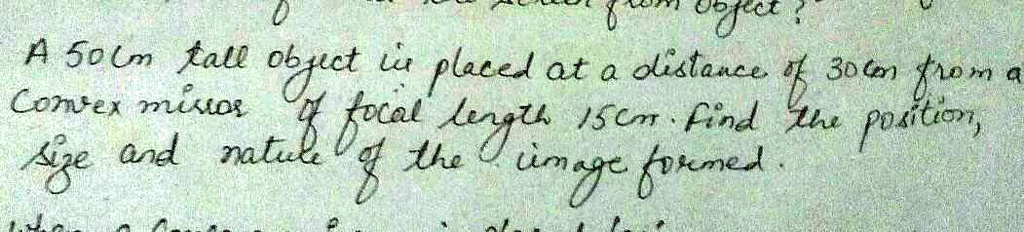 from object?
A 50cm tall object is placed at a distance of 30cm from a
Convex mirror of focal length 15cm. Find the position,
size and nature of the image formed.